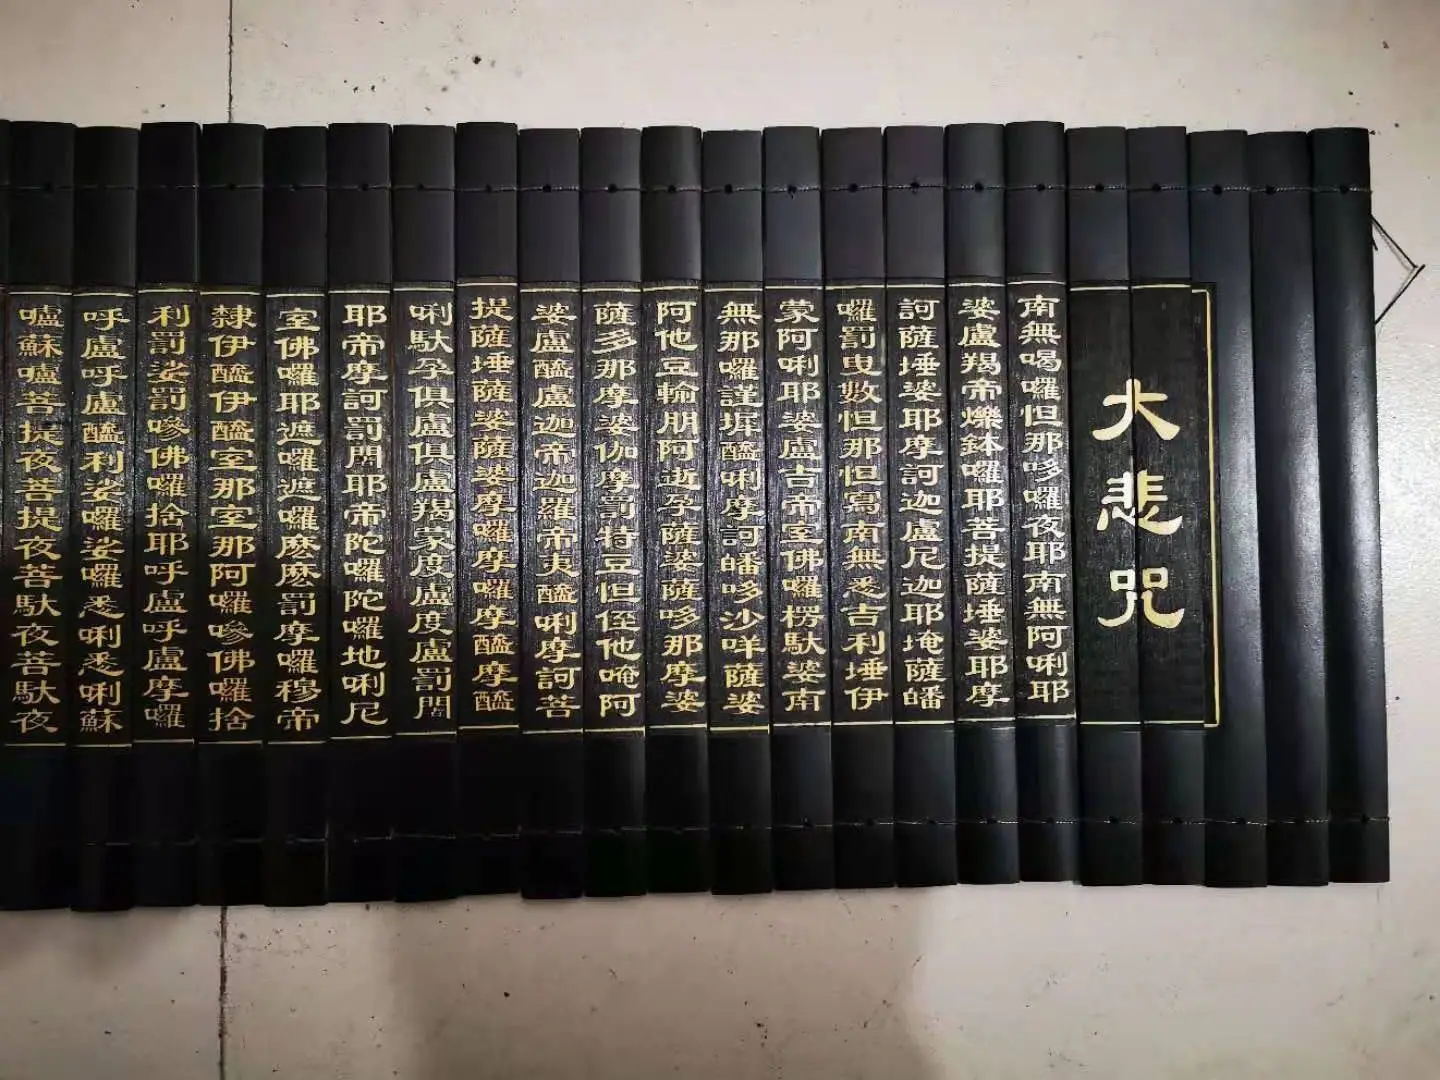 大悲咒
南無喝囉怛那哆囉夜耶南無阿唎耶
婆盧羯帝爍鉢囉耶菩提薩埵婆耶摩
訶薩埵婆耶摩訶迦盧尼迦耶埯薩皤
囉罰曳數怛那怛寫南無悉吉利埵伊
蒙阿唎耶婆盧吉帝室佛囉楞馱婆南
無那囉謹墀醯唎摩訶皤哆沙咩薩婆
阿他豆輸朋阿逝孕薩婆薩哆那摩婆
薩多那摩婆伽摩罰特豆怛侄他唵阿
婆盧醯盧迦帝迦羅帝夷醯唎摩訶菩
提薩埵薩婆薩婆摩囉摩囉摩醯摩醯
唎馱孕俱盧俱盧羯蒙度盧度盧罰闍
耶帝摩訶罰闍耶帝陀囉陀囉地唎尼
室佛囉耶遮囉遮囉麽麽罰摩囉穆帝
隸伊醯伊醯室那室那阿囉嘇佛囉捨
利罰娑罰嘇佛囉捨耶呼盧呼盧摩囉
呼盧呼盧醯利娑囉娑囉悉唎悉唎蘇
嚧蘇嚧菩提夜菩提夜菩馱夜菩馱夜